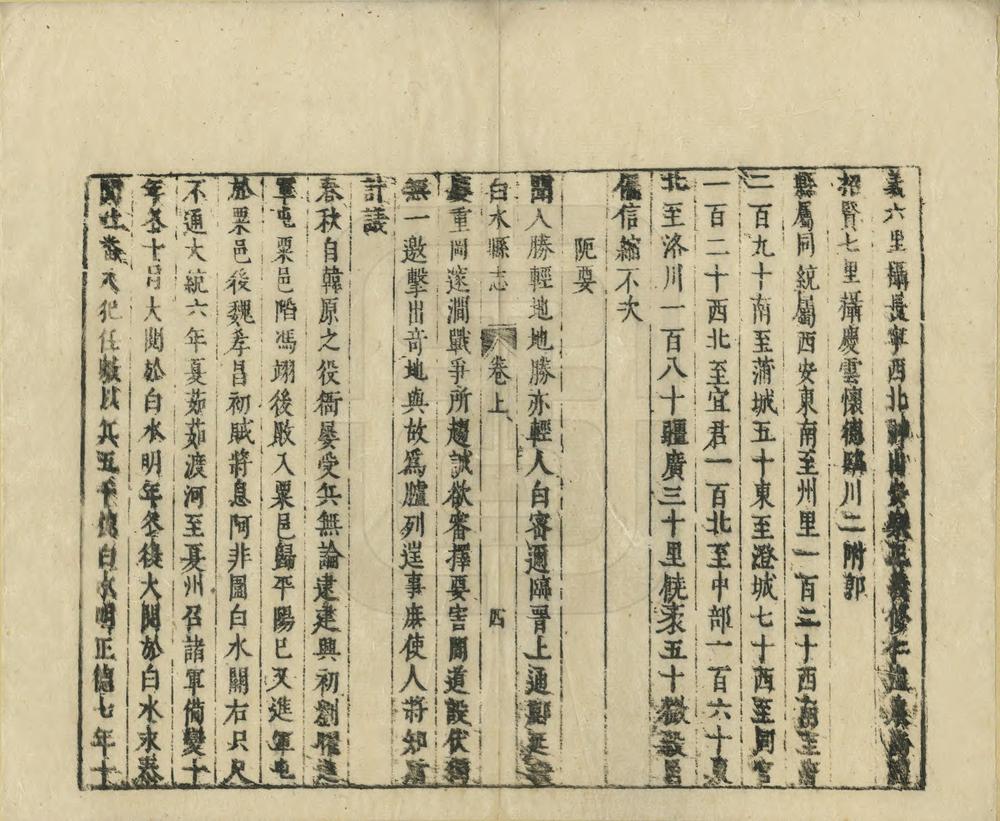 義六里攝長寧西北
招賢七里攝慶雲懷德臨川二附郭
縣屬同統屬西安東南至州里一百二十西南至
二百九十南至蒲城五十東至澄城七十西至同官
一百二十西北至宜君一百北至中部一百六十東
北至洛川一百八十疆廣三十里袤五十
信縮不次
阨要
聞人勝輕地地勝亦輕人白審邇臨晉上通鄜延
白水縣志 卷上 四
重岡邃澗戰爭所趨誠欲審擇要害間道設伏
無一邀擊出奇地與故爲臚列逞事庶使人將知
計議
春秋自韓原之役衙屡受兵無論建興初劉曜
軍屯粟邑陷馮翊後敗入粟邑歸平陽已又進軍屯
於粟邑後魏孝昌初賊將息阿非圖白水關右只尺
不通大統六年夏茹茹渡河至夏州召諸軍備變十
年冬十月大閱於白水明年冬復大閱於白水永泰
入犯任敷以兵五千白水明正德七年十